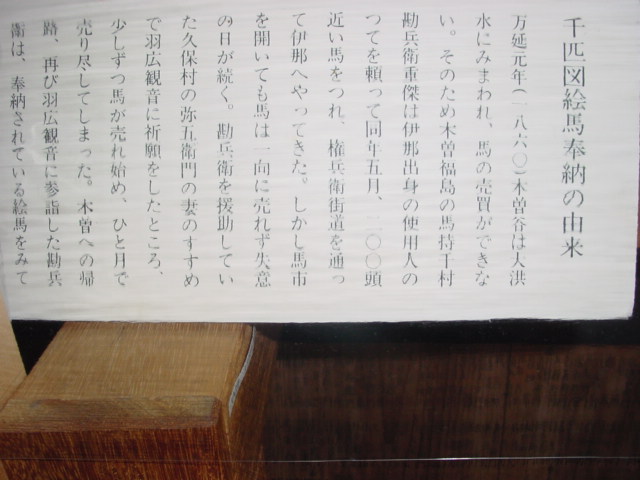 千匹図絵馬奉納の由来
万延元年(一八六〇)木曽谷は大洪
水にみまわれ、馬の売買ができな
い。そのため木曽福島の馬持千村
勘兵衛重傑は伊那出身の使用人の
つてを頼って同年五月、二〇〇頭
近い馬をつれ、権兵衛街道を通っ
て伊那へやってきた。しかし馬市
を開いても馬は一向に売れず失意
の日が続く。勘兵衛を援助してい
た久保村の弥五衛門の妻のすすめ
で羽広観音に祈願をしたところ、
少しずつ馬が売れ始め、ひと月で
売り尽してしまった。木曽への帰
路、再び羽広観音に参詣した勘兵
衛は、奉納されている絵馬をみて